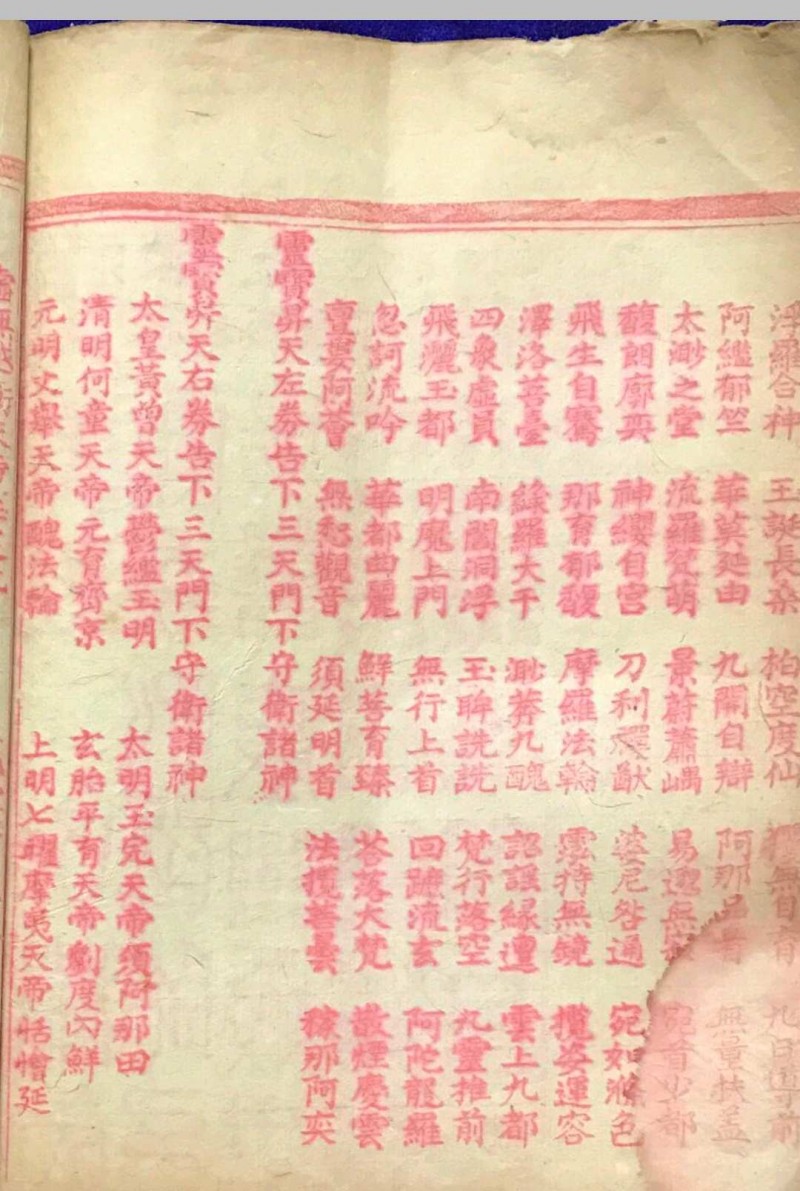 浮羅合神 王誕長桑 柏空度仙 獨無自育 九日導前
阿繼郁竺 華莫延由 九開自辯 阿那品首 無量扶蓋
太渺之堂 流羅梵萌 景蔚蕭嵎 易邈無寂 宛首少都
馥朗廓奕 神纓自宮 刀利禪猷 婆尼咎通 宛如滌色
飛生自騫 那育郁馥 摩羅法輪 霐持無鏡 攬姿運容
澤洛菩臺 緣羅大千 渺莽九醜 韶謠緣邅 雲上九都
四衆虛頁 南閣洞浮 玉眸詵詵 梵行落空 九靈推前
飛灑玉都 明魔上門 無行上首 回蹠流玄 阿陀龍羅
忽訶流吟 華都曲麗 鮮菩育臻 荅落大梵 散煙慶雲
亶婁阿薈 無愁觀音 須延明首 法攬菩曇 稼那阿奕
靈寶昇天左券告下三天門下守衛諸神
靈寶昇天右券告下三天門下守衛諸神
太皇黃曾天帝鬱繿玉明 太明玉完天帝須阿那田
清明何童天帝元育齊京 玄胎平育天帝劉度內鮮
元明文舉天帝醜法輪 上明七曜摩夷天帝恬憎延